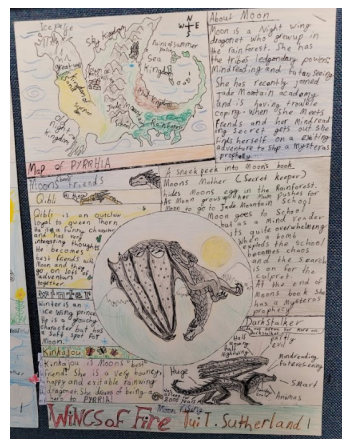 Ice
Sky Kingdom
N
W E
S
rainforest
Sea
Kingdom
Kingdom
Map of PYRRHIA
About Moon
Moon is a Night wing
dragonet who grew up in
the rainforest. She has
the tribes legendary powers
Mindreading and future seeing.
She has recently joined
Jade Mountain academy
and is having trouble
coping. When she meets
friends and her mindread
ing Secret gets out she
finds herself on a exiting
adventure to stop a mysterus
prophecy
Moons friends
Qibli
Qibli is an outclaw
loyal to queen Thorn
he is a funny chawming
and has very
interesting thoughts
he becomes
best friends with
Moon and they
go on lots of
adventures
together.
Winter is an
Ice Wing prince
He is a grumpy
character but has
a soft spot for
Moon.
Kinkajou
Kinkajou is Moons best
friend. She is a very bouncy,
happy and exitable rainwing
dragonet. She dreams of being a
hero to PYRRHIA
A sneek peek into Moons book
Moons Mother (Secret keeper)
hides Moons egg in the Rainforest.
As Moon grows older Mum pushes for
Moon to go to Jade Mountain School
Moon goes to School
but as a Mind reader
its quite overwhelming
When a bomb
explods the school
becomes chaos
and the search
is on for the
culprit
At the end of
Moons book she
has a mysterus
prophesy
DarkStalker
partly
evil
Half
Mindreading
futureseeing
Huge
Smart
Animus
WINGS of FIRE Tui T. Sutherland